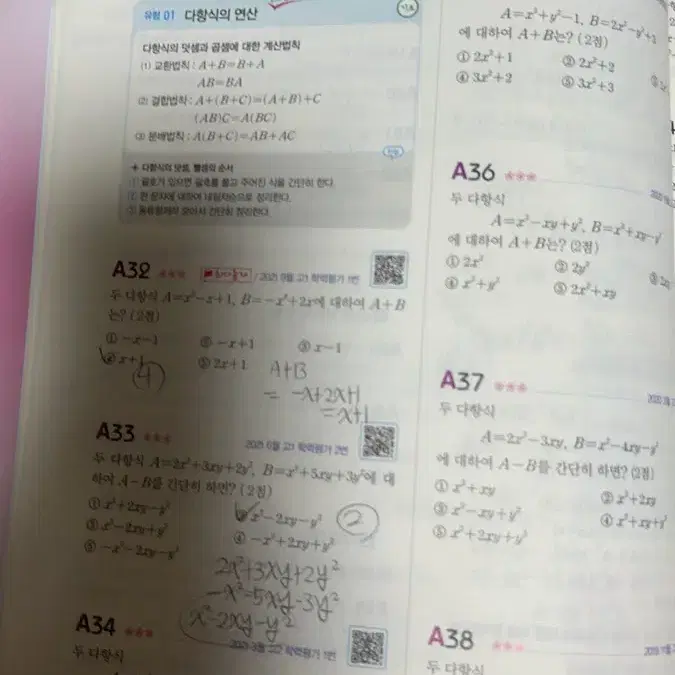 유형 01 다항식의 연산
다항식의 덧셈과 곱셈에 대한 계산법칙
(1) 교환법칙 : A+B=B+A
AB=BA
(2) 결합법칙 : A+(B+C)=(A+B)+C
(AB)C=A(BC)
(3) 분배법칙 : A(B+C)=AB+AC
+ 다항식의 덧셈, 뺄셈의 순서
① 괄호가 있으면 괄호를 풀고 주어진 식을 간단히 한다.
② 한 문자에 대하여 내림차순으로 정리한다.
③ 동류항끼리 모아서 간단히 정리한다.
A32 ***
/ 2021 9월 고1 학력평가 1번
두 다항식 A=x²-x+1, B=-x²+2x에 대하여 A+B
는? (2점)
① -x-1 ② -x+1 ③ x-1
④ x+1 ⑤ 2x+1
④
A+B
= -x+2x+1
= x+1
A33 ***
2021 6월 고1 학력평가 2번
두 다항식 A=2x²+3xy+2y², B=x²+5xy+3y²에 대
하여 A-B를 간단히 하면? (2점)
① x²+2xy-y² ② x²-2xy-y²
③ x²-2xy+y² ④ -x²+2xy+y²
⑤ -x²-2xy-y²
②
2x²+3xy+2y²
-x²-5xy-3y²
x²-2xy-y²
A34 ***
2021 3월 고2 학력평가 1번
두 다항식
A=x²+y²-1, B=2x²-y²+3
에 대하여 A+B는? (2점)
① 2x²+1 ② 2x²+2
④ 3x²+2 ⑤ 3x²+3
A36 ***
두 다항식
A=x²-xy+y², B=x²+xy-y²
에 대하여 A+B는? (2점)
① 2x² ② 2y²
④ x²+y² ⑤ 2x²+xy
A37 ***
두 다항식
A=2x²-3xy, B=x²-4xy-y²
에 대하여 A-B를 간단히 하면? (2점)
① x²+xy ② x²+2xy
③ x²-xy+y² ④ x²+xy+y²
⑤ x²+2xy+y²
A38 ***
두 다항식